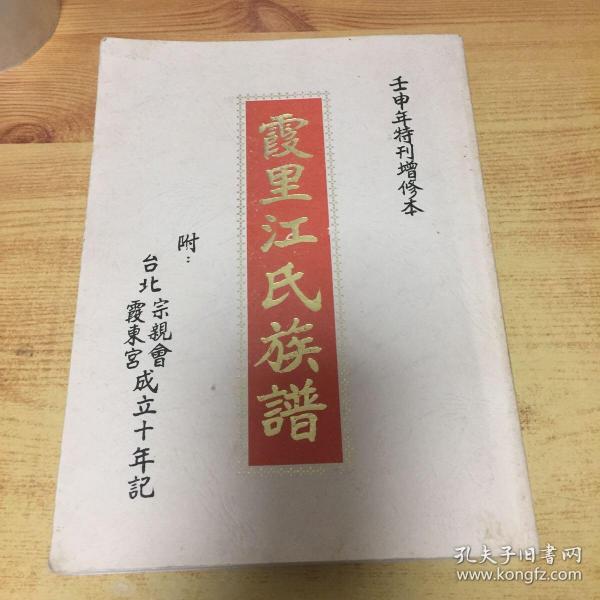 壬申年特刊增修本
霞里江氏族譜
附：
台北宗親會
霞東宮成立十年記
孔夫子旧书网
www.kongfz.com